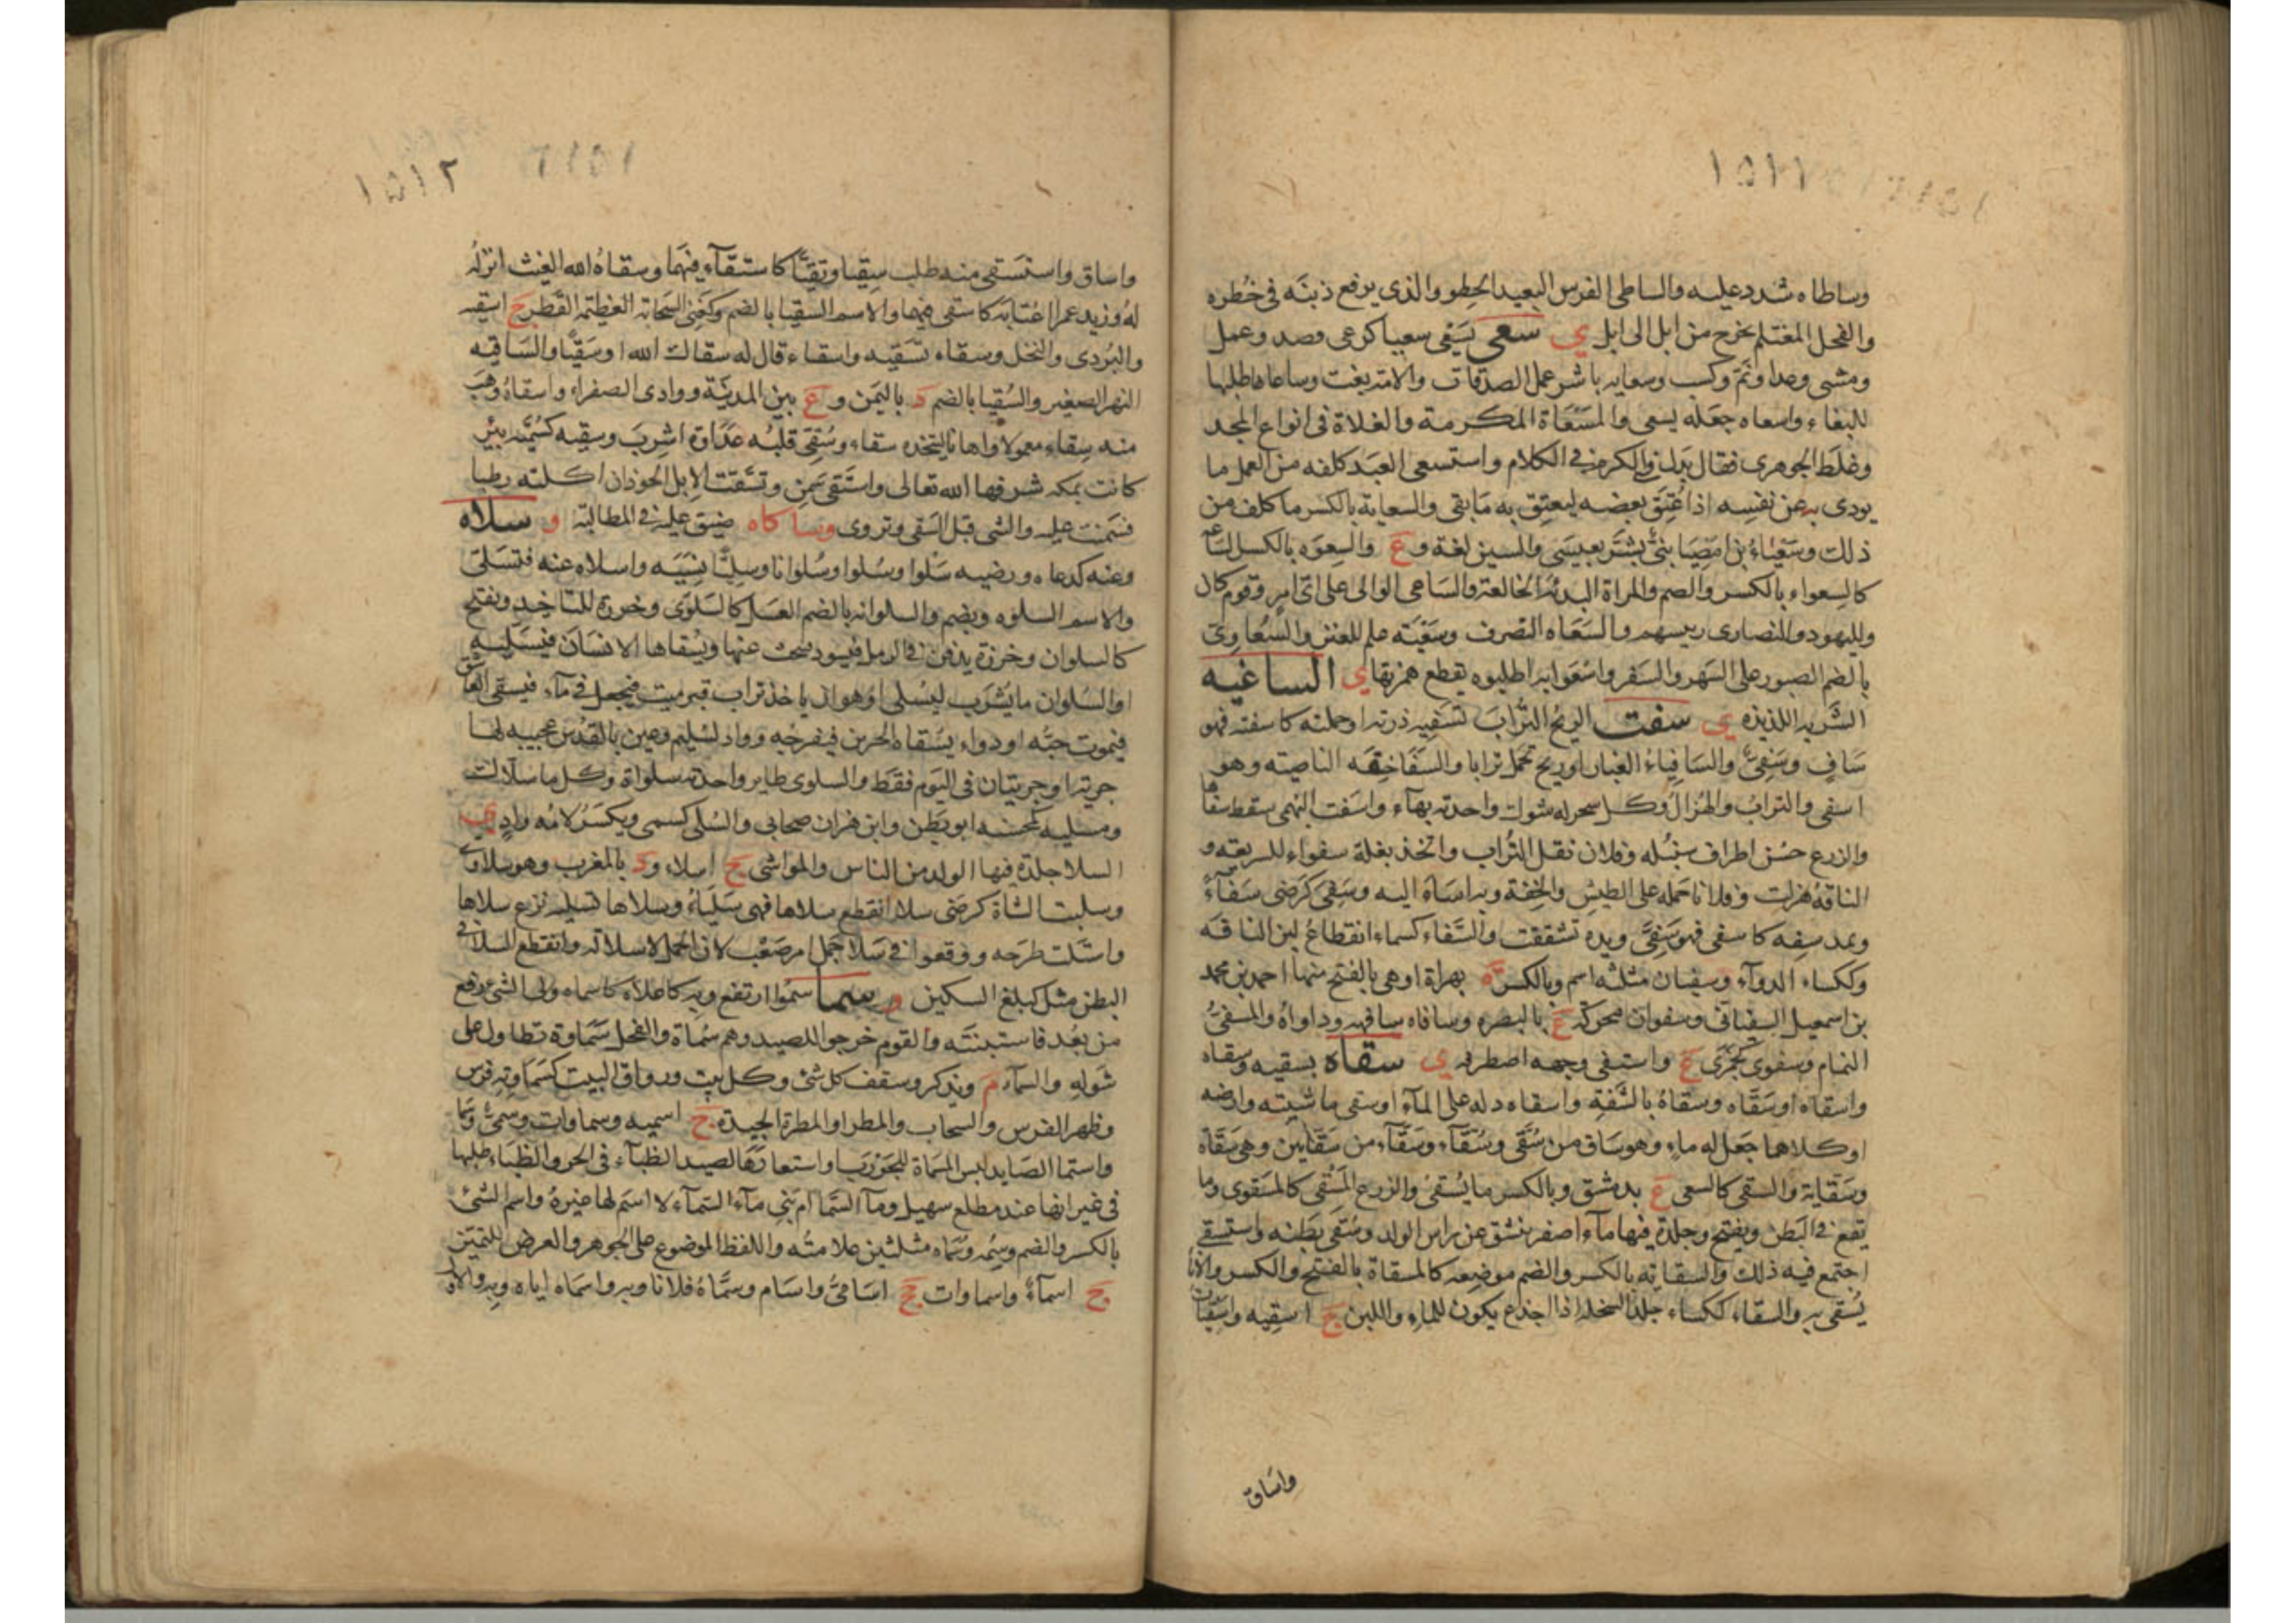 ١٥١١
وساطاه شدد عليه والساطى الفرس البعيد الخطو والذى يرفع ذنبه فى خطره
والفحل المغتلم يخرج من ابل الى ابل ي سعى يسعى سعيا كرعى وصد وعمل
ومشى وعدا ونم وكسب وسعايه باشر عمل الصدقات والامة بغت وساعاها طلبها
للبغاء واسعاه جعله يسعى والمسعاة المكرمة والغلاة فى انواع المجد
وغلط الجوهرى فقال بدل فى الكرم فى الكلام واستسعى العبد كلفه من العمل ما
يودى به عن نفسه اذا عتق بعضه ليعتق به ما بقى والسعاية بالكسر ما كلف من
ذلك وسعياء بن امصيا نبى بشر بعيسى والسين لغة و ع والسعوه بالكسر الساعه
كالسعواء بالكسر والضم والمراة البذئه الخالعة والساعى الوالى على اى امر وقوم كان
ولليهود والنصارى رييسهم والسعاه التصرف وسعيه علم للعنز والسعاوى
بالضم الصبور على السهر والسفر واسعوا به اطلبوه بقطع همزتها ي الساغيه
الشربه اللذيذه ي سفت الريح التراب تسفيه ذرته او حملته كاسفته فهو
ساف وسفى والسافياء الغبار او ريح تحمل ترابا والسفا خفة الناصيته وهو
اسفى والتراب والهزال وكل شجر له شوك واحدته بهآء واسفت البهمى سقط سفاها
والزرع خشن اطراف سنبله وفلان نقل التراب واتخذ بغلة سفواء للسريعة و
الناقة هزلت وفلانا حمله على الطيش والخفة وبه اساء اليه وسفى كرضى سفاء
ويمد سفه كاسفى فهو سفى ويده تشققت والسفاء كسماء انقطاع لبن الناقه
وككساء الدوآء وسفيان مثلثه اسم وبالكسر ة بهراة او هى بالفتح منها احمد بن محمد
بن اسمعيل السفيانى وسفوان محركة ع بالبصره وسافاه سافهه وداواه والمسفى
النمام وسفوى كجمزى ع واستفى وجهه اصطرفه ي سقاه يسقيه وسقاه
واسقاه او سقاه وسقاه بالشفة واسقاه دله على المآء او سقى ماشيته وارضه
او كلاهما جعل له ماء وهو ساق من سقى وسقآء وسقآء من سقايين وهى سقاة
وسقاية والسقى كالسعى ع بدمشق وبالكسر ما يسقى والزرع المسقى كالمسقوى وما
يقع فى البطن ويفتح وجلدة فيها مآء اصفر ينشق عن راس الولد وسقى بطنه واستسقى
اجتمع فيه ذلك والسقاية بالكسر والضم موضعه كالمسقاة بالفتح والكسر والاناء
يسقى به والسقاء ككساء جلد السخلة اذا اجذع يكون للماء واللبن ج اسقيه واسقيات
واساق
١٥١٢
واساق واستسقى منه طلب سقيا وتقيا كاستقآء فيهما وسقاه الله الغيث انزله
له وزيد عمرا اغتابه كاستقى فيهما والاسم السقيا بالضم وكغنى السحابة العظيمة القطر ج اسقيه
والبردى والنخل وسقاه تسقيه واسقاء قال له سقاك الله او سقيا والساقيه
النهر الصغير والسقيا بالضم د باليمن و ع بين المدينة ووادى الصفراء واسقاه وهب
منه سقاء معمولا او اهابا ليتخذه سقاء وسقى قلبه عداوة اشرب وسقيه كسميه بئر
كانت بمكه شرفها الله تعالى واستقى سمن وتسقت الابل الحوذان اكلته رطبا
فسمنت عليه والشى قبل السقى وتروى وساكاه ضيق عليه فى المطالبة و سلاه
وعنه كدعاه ورضيه سلوا وسلوا وسلوانا وسليا نسيه واسلاه عنه فتسلى
والاسم السلوه ويضم والسلوانه بالضم العسل كالسلوى وخرزة للتاخيد ويفتح
كالسلوان وخرزة يدفن فى الرمل فيسود يبحث عنها ويسقاها الانسان فيسليه
او السلوان ما يشرب ليسلى او هو ان ياخذ تراب قبر ميت فيجعل فى مآء فيسقى العاشق
فيموت حبه او دواء يسقاه الحزين فيفرحه وواد لسليم وعين بالقدس عجيبه لها
جرية او جريتان فى اليوم فقط والسلوى طاير واحدته سلواة وكل ما سلاك
ومسليه كمحسنه ابو بطن وابن هزان صحابى والسلى كسمى ويكسر لامه واد ي
السلا جلدة فيها الولد من الناس والمواشى ج اسلاء و د بالمغرب وهو سلاوى
وسليت الشاة كرضى سلا انقطع سلاها فهى سلياء وسلاها تسليه نزع سلاها
واستلت طرحه ووقعوا فى سلا جمل امر صعب لان الجمل لا سلا له وانقطع السلا فى
البطن مثل كبلغ السكين و سما سموا ارتفع وبه كاعلاه كاسماه ولى الشى رفع
من بعد فاستبنته والقوم خرجوا للصيد وهم سماة والفحل سماوة تطاول على
شوله والسمآء م ويذكر وسقف كل شى وكل بيت ورواق البيت كسماوته فرس
وظهر الفرس والسحاب والمطر او المطرة الجيدة ج اسميه وسماوات وسمى وسما
واستما الصايد لبس المسماة للجورب او استعارها لصيد الظبآء فى الحر والظباء طلبها
فى غيرانها عند مطلع سهيل ومآ السما ام بنى مآء السمآء لا اسم لها غيره واسم الشى
بالكسر والضم وسمه وسماه مثلثين علامته واللفظ الموضوع على الجوهر والعرض للتميز
ج اسمآء واسماوات جج اسامى واسام وسماه فلانا وبه واسماه اياه وبه والاول